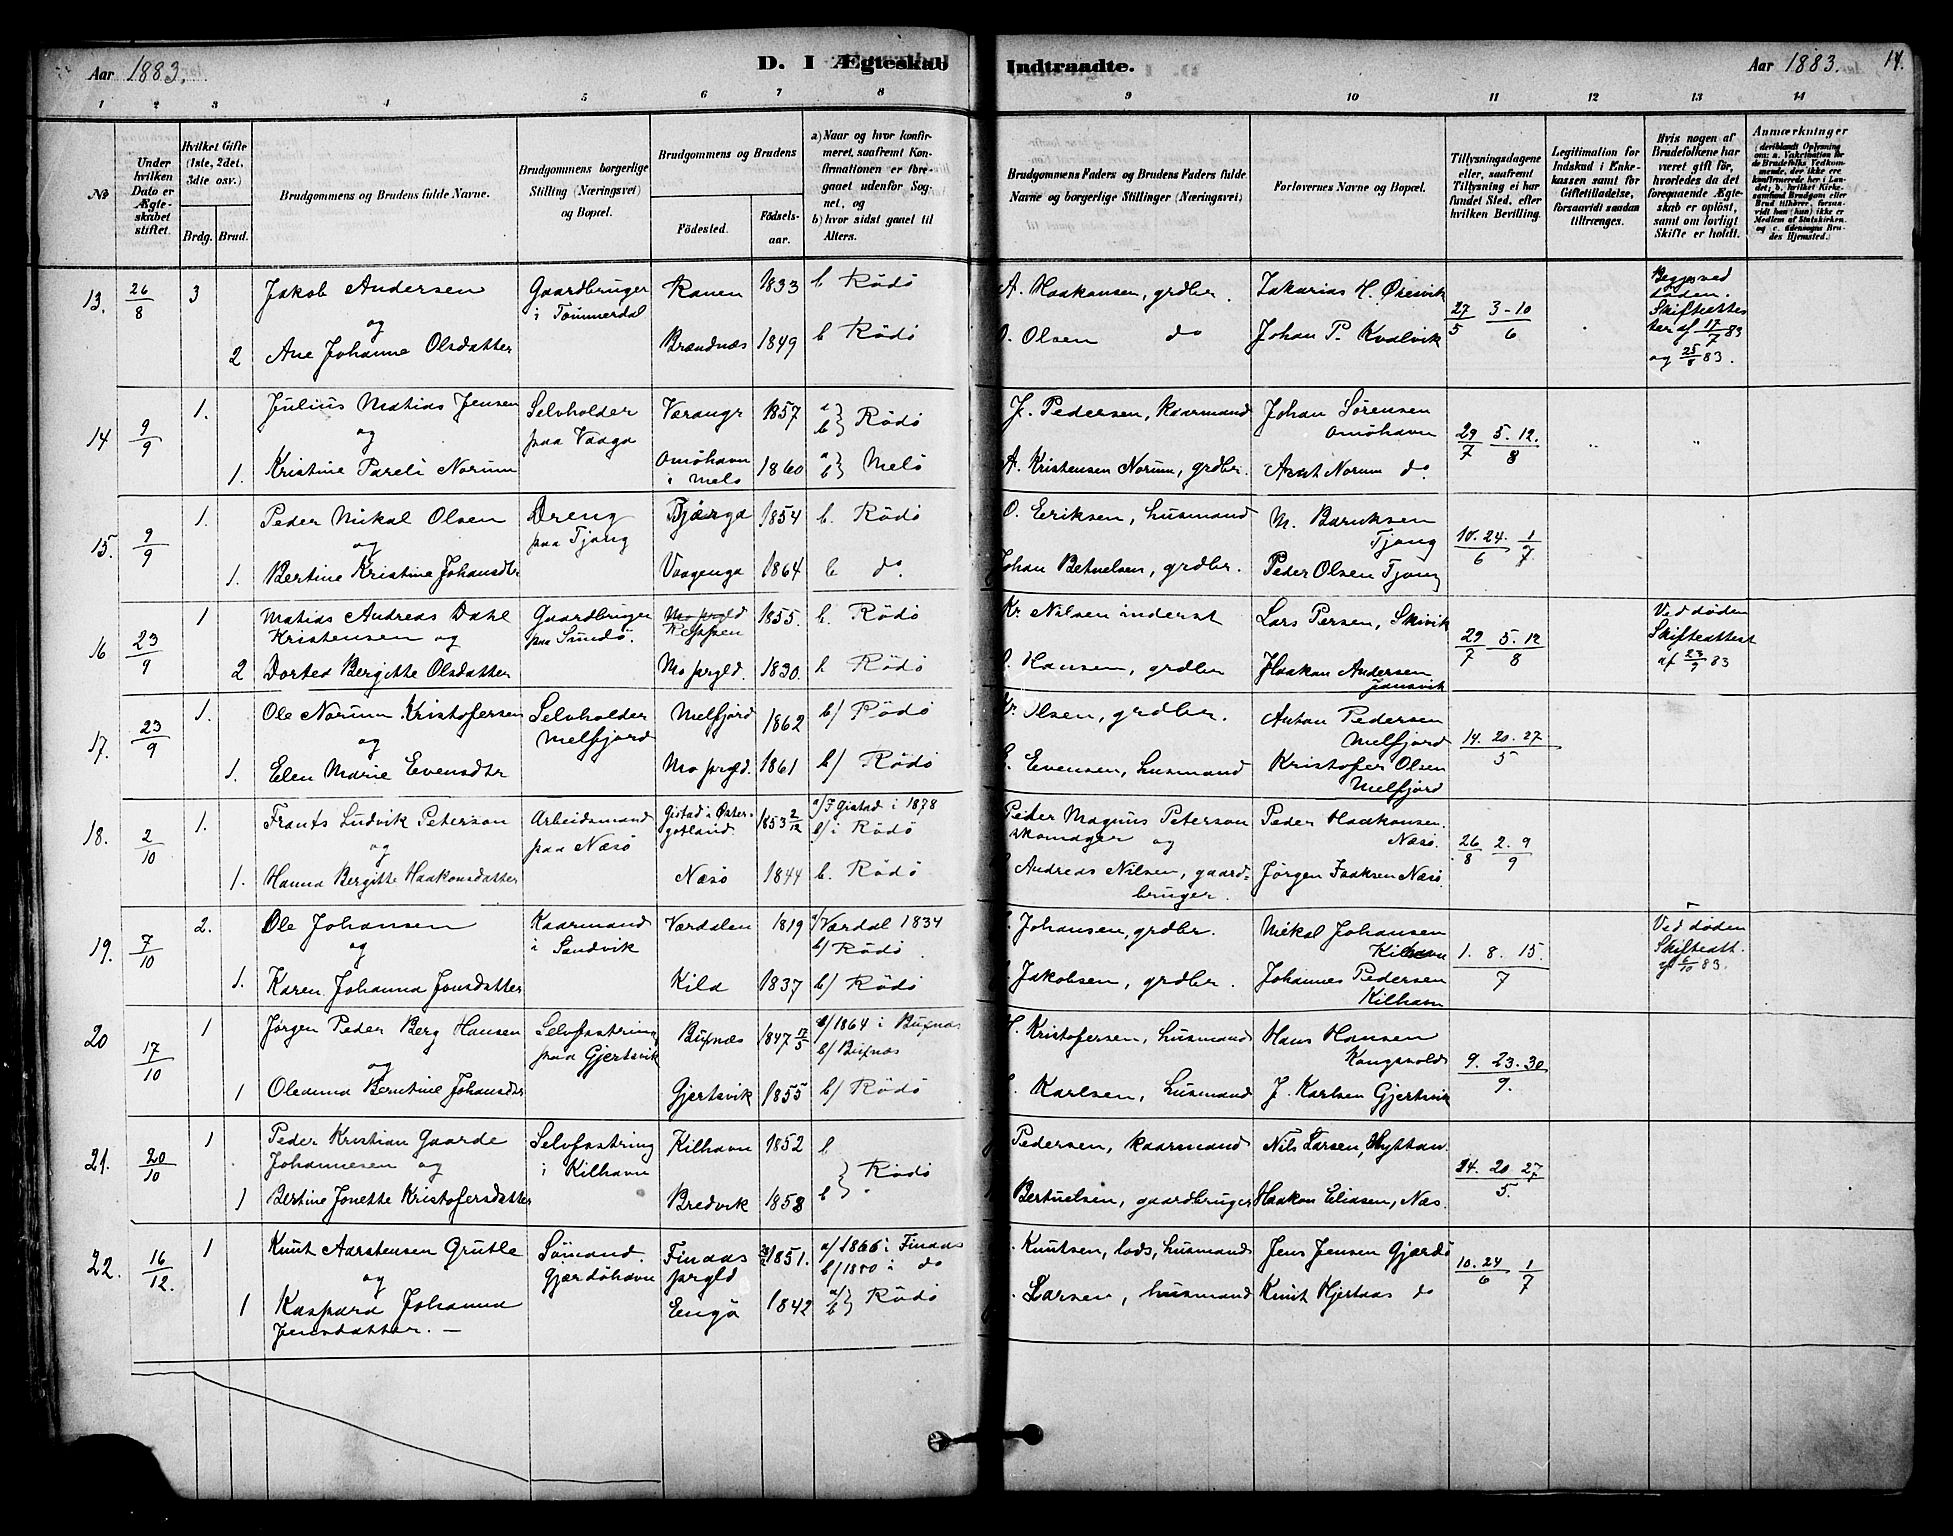 Aar 1883.
D. I Ægteskab
Indtraadte.
Aar 1883.
14.
1 2 3 4 5 6 7 8
9 10 11 12 13 14
No
Under hvilken Dato er Ægteskabet stiftet.
Hvilket Gifte (1ste, 2det, 3die osv.)
Brdg. Brud.
Brudgommens og Brudens fulde Navne.
Brudgommens borgerlige Stilling (Næringsvei) og Bopæl.
Brudgommens og Brudens
Fødested.
Fødselsaar.
a) Naar og hvor konfirmeret, saafremt Konfirmationen er foregaaet udenfor Sognet, og
b) hvor sidst gaaet til Alters.
Brudgommens Faders og Brudens Faders fulde Navne og borgerlige Stillinger (Næringsvei)
Forlovernes Navne og Bopæl.
Tillysningsdagene eller, saafremt Tillysning ei har fundet Sted, efter hvilken Bevilling.
Legitimation for Indskud i Enkekassen samt for Giftetilladelse, forsaavidt saadan tiltrænges.
Hvis nogen af Brudefolkene har været gift før, hvorledes da det foregaaende Ægteskab er opløst, samt om lovligt Skifte er holdt.
Anmærkninger
13. 26/8 3 Jakob Andersen Gaardbruger Ranen 1833 b Rödö A. Haakonsen, grdbr. Zakarias H. Øresvik 27/5 3-10/6 Begge ved
og i Tömmerdal døden.
2 Ane Johanne Olsdatter Brændnæs 1849 b Rödö O. Olsen do Johan P. Kvalvik Skifteattester af 17/7 83
og 25/8 83.
14 9/9 1. Julius Matias Jensen Selvholder Varangr 1857 a b} Rödö J. Pedersen, kaarmand Johan Sørensen 29/7 5. 12./8 " "
og paa Vaaga Omöhavn
1. Kristine Pareli Norum Omöhavn i Melö 1860 a b} Melö A. Kristensen Norum, grdbr. Arnt Norum do.
15. 9/9 1. Peder Mikal Olsen Dreng Bjærga 1854 b. Rödö O. Eriksen, husmand M. Baruksen 10. 24./6 1/7
og paa Tjong Tjong
1. Bertine Kristine Johansdtr Vaagenga 1864 b do. Johan Betuelsen, grdbr. Peder Olsen Tjong
16 23/9 1 Matias Andreas Dahl Gaardbruger Mo prgld 1855. b. Rödö Kr. Nilsen inderst Lars Persen, Skivik 29/7 5. 12/8 Ved døden
Kristensen og paa Sundö. Røppen Skifteattest
2 Dortea Bergitte Olsdatter Mo prgld. 1830. b Rödö O. Hansen, grdbr Haakon Andersen af 23/9 83
Jensvik
17. 23/9 1. Ole Norum Kristofersen Selvholder Melfjord 1862 b/ Rödö Kr. Olsen, grdbr. Anton Pedersen 14. 20. 27/5
og Melfjord Melfjord
1. Elen Marie Evensdtr Mo prgld. 1861 b/ Rödö E. Evensen, husmand Kristofer Olsen
Melfjord
18. 2/10 1. Frants Ludvik Peterson Arbeidsmand Gistad i Østergotland 1853 2/12 a/ F. Gistad i 1878 Peder Magnus Peterson Peder Haakonsen. 26/8 2. 9/9
og paa Næsö b/ i Rödö skomager og Næsö.
1. Hanna Bergitte Haakonsdatter Næsö 1844 b. Rödö Andreas Nilsen, gaardbruger. Jørgen Isaksen Næsö.
19. 7/10 2. Ole Johansen Kaarmand Værdalen 1819 a/ Værdal 1834 Johansen, grdbr. Mikal Johansen 1. 8. 15./7 Ved døden
og i Sandvik b/ Rödö Kilhavn Skifteatt.
1. Karen Johanna Jonsdatter Kila 1837 b/ Rödö Jakobsen, grdbr. Johannes Pedersen af 6/10 83.
Kilhavn
20 17/10 1 Jørgen Peder Berg Hansen Selvfostring Buxnæs 1847 17/5 a/ 1864 i Buxnæs H. Kristofersen, husmand Hans Hansen 9. 23. 30/9.
og paa Gjertsvik b/ Buxnæs Kongsvold
1 Oleanna Berntine Johansdtr Gjertsvik 1855 b/ Rödö J. Karlsen, husmand J. Karlsen Gjertsvik
21. 20/10 1 Peder Kristian Gaarde Selvfostring Kilhavn 1852 b Pedersen, kaarmand Nils Larsen, Hyttan 14. 20 27/5.
Johannesen og i Kilhavn } Rödö
1 Bertine Jonette Kristofersdatter Bredvik 1858 b Bertuelsen, gaardbruger Haakon Eliasen, Næs.
22. 16/12. 1 Knut Aarstensen Grutle Sömand. Finaas 1851. a/ 1866 i Finaas Knutsen, lods, husmand Jens Jensen Gjærdö 10. 24/6 1/7
og Gjærdöhavn prgld b/ 1880 i do
1 Kaspara Johanna Engö 1842 a/ b} Rödö Larsen, husmand Knut Hjertaas do
Jensdatter. —